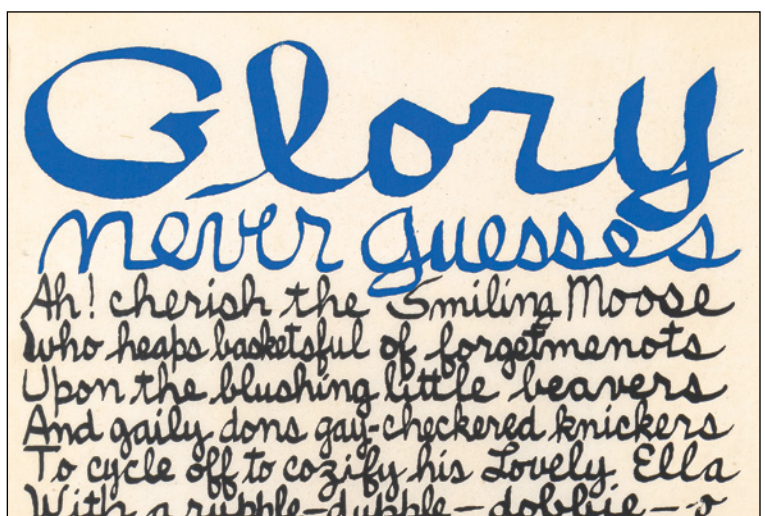 Glory
never guesses
Ah! cherish the Smiling Moose
Who heaps basketsful of forgetmenots
Upon the blushing little beavers
And gaily dons gay-checkered knickers
To cycle off to cozify his Lovely Ella
With a rubble-dubble-dobbie-o